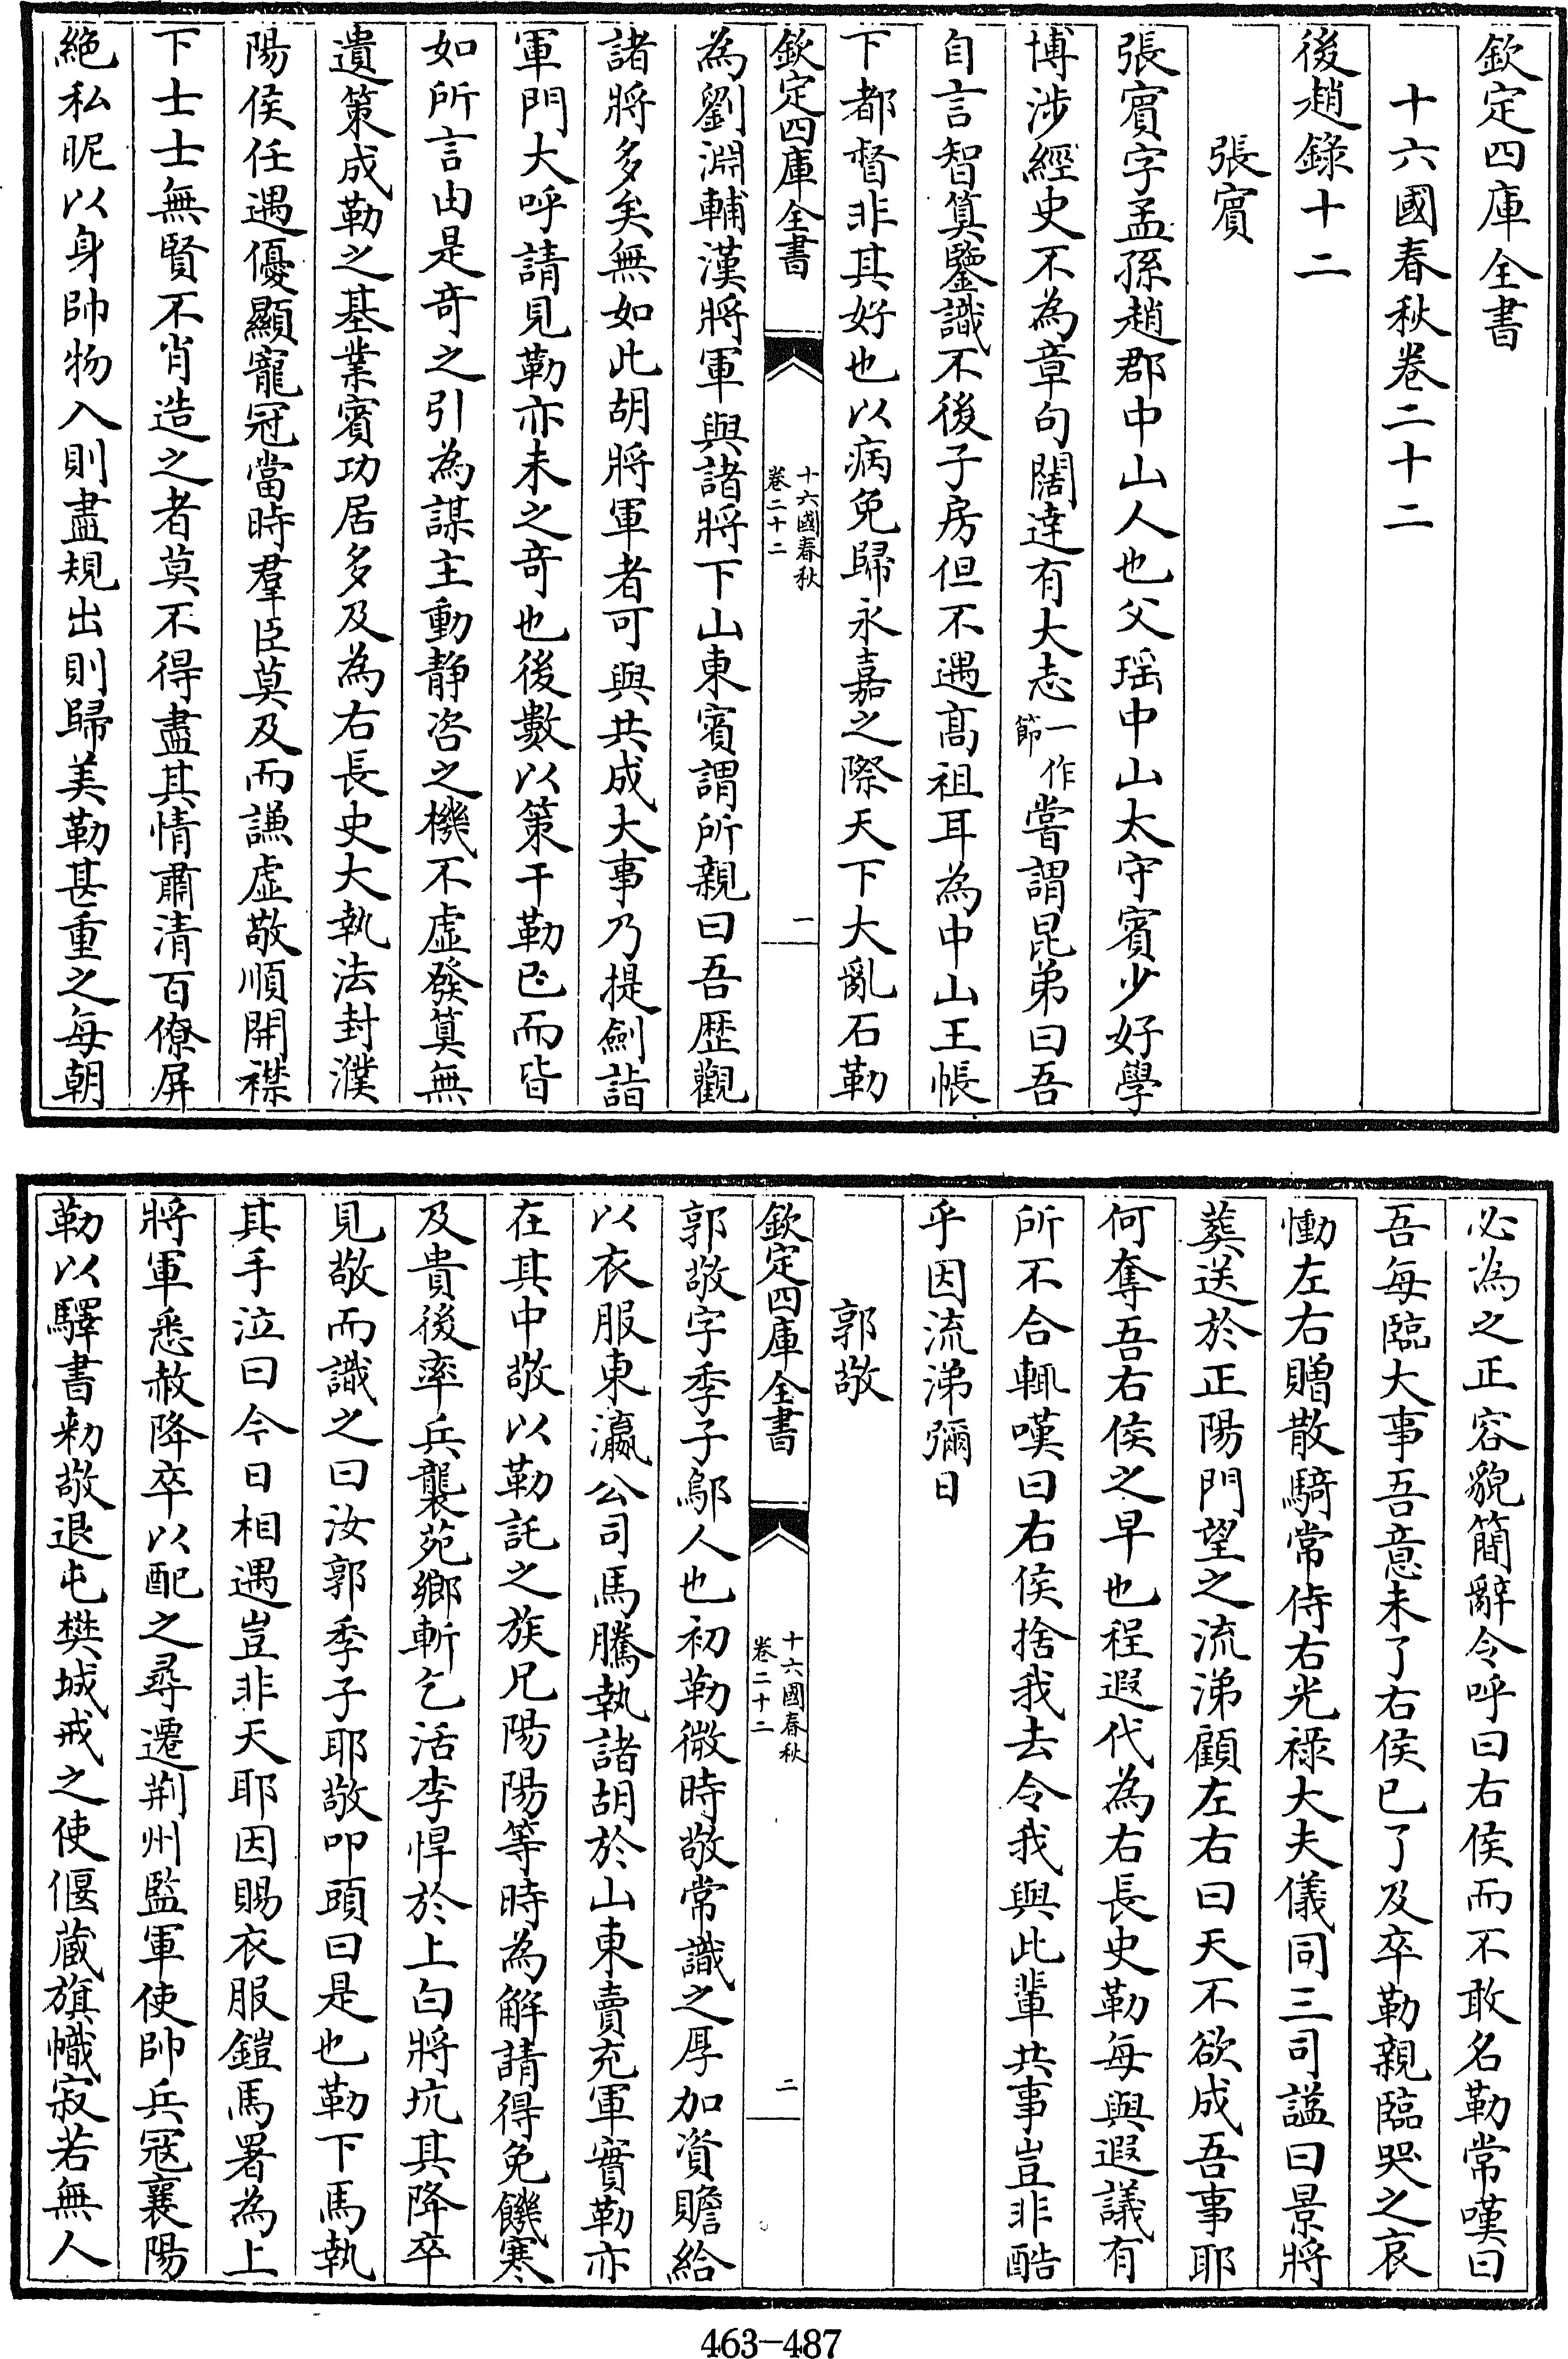 欽定四庫全書
十六國春秋卷二十二
後趙錄十二
張賓
張賓字孟孫趙郡中山人也父瑶中山太守賓少好學
博涉經史不為章句闊達有大志一作節嘗謂昆弟曰吾
自言智算鑒識不後子房但不遇髙祖耳為中山王帳
下都督非其好也以病免歸永嘉之際天下大亂石勒
欽定四庫全書
十六國春秋
卷二十二
一
為劉淵輔漢將軍與諸將下山東賓謂所親曰吾歴觀
諸將多矣無如此胡將軍者可與共成大事乃提劍詣
軍門大呼請見勒亦未之奇也後數以策干勒已而皆
如所言由是奇之引為謀主動静咨之機不虚發算無
遺策成勒之基業賓功居多及為右長史大執法封濮
陽侯任遇優顯寵冠當時羣臣莫及而謙虚敬順開襟
下士士無賢不肖造之者莫不得盡其情肅清百僚屏
絶私昵以身帥物入則盡規出則歸美勒甚重之每朝
必為之正容貌簡辭令呼曰右侯而不敢名勒常嘆曰
吾每臨大事吾意未了右侯已了及卒勒親臨哭之哀
慟左右贈散騎常侍右光禄大夫儀同三司諡曰景將
葬送於正陽門望之流涕顧左右曰天不欲成吾事耶
何奪吾右侯之早也程遐代為右長史勒每與遐議有
所不合輒嘆曰右侯捨我去令我與此輩共事豈非酷
乎因流涕彌日
郭敬
欽定四庫全書
十六國春秋
卷二十二
二
郭敬字季子鄔人也初勒微時敬常識之厚加資贍給
以衣服東瀛公司馬騰執諸胡於山東賣充軍實勒亦
在其中敬以勒託之族兄陽陽等時為解請得免饑寒
及貴後率兵襲苑鄉斬乞活李惲於上白將坑其降卒
見敬而識之曰汝郭季子耶敬叩頭曰是也勒下馬執
其手泣曰今日相遇豈非天耶因賜衣服鎧馬署為上
將軍悉赦降卒以配之尋遷荆州監軍使帥兵冦襄陽
勒以驛書勑敬退屯樊城戒之使偃蔵旗幟寂若無人
463-487